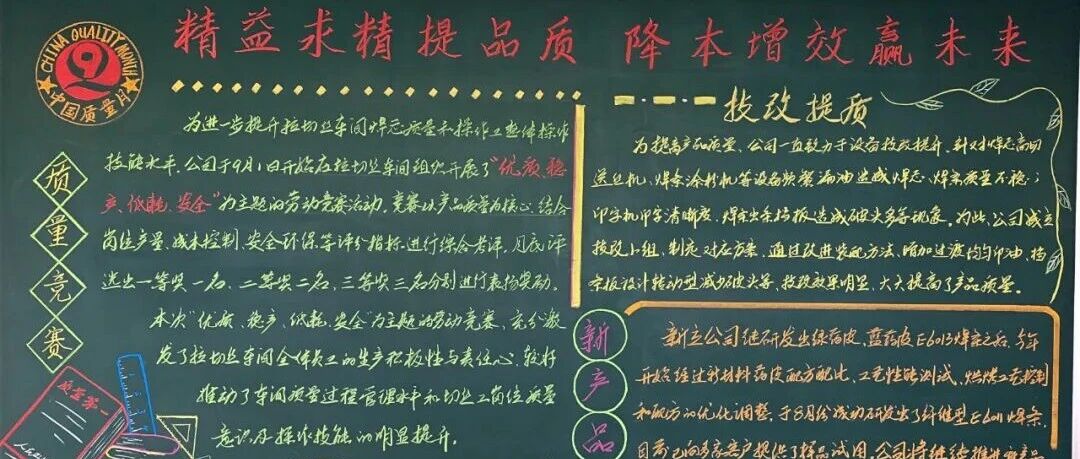 精益求精提品质 降本增效赢未来
CHINA QUALITY MONTH
中国质量月
质量竞赛
为进一步提升拉切丝车间焊芯质量和操作工整体操作
技能水平,公司于9月1日开始在拉切丝车间组织开展了“优质、稳
产、低耗、安全”为主题的劳动竞赛活动。竞赛以产品质量为核心,结合
岗位产量、成本控制、安全环保等评分指标进行综合考评,月底评
选出一等奖一名、二等奖二名、三等奖三名分别进行表扬奖励。
本次“优质、稳产、低耗、安全”为主题的劳动竞赛,充分激
发了拉切丝车间全体员工的生产积极性与责任心,较好
推动了车间质量过程管理水平和切丝工岗位质量
意识及操作技能的明显提升。
质量第一
技改提质
为提高产品质量,公司一直致力于设备技改提升,针对焊芯高切
送丝机、焊条涂粉机等设备频繁漏油造成焊芯、焊条质量不稳;
印字机印字清晰度、焊条挡板造成破头多等现象。为此,公司成立
技改小组,制定对应方案,通过改进装配方法、增加过渡均匀印油、档
条板设计转动型减少破头等,技改效果明显,大大提高了产品质量。
新产品
新立公司继研发出绿药皮、蓝药皮E6013焊条之后,今年
开始经过新材料药皮配方配比、工艺性能测试、烘焙工艺控制
和配方的优化调整,于8月份成功研发出了纤维型E6011焊条,
目前已向多家客户提供了样品试用,公司将继续推进新产品